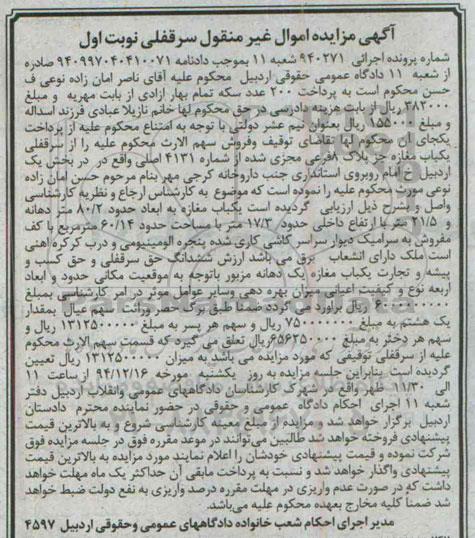 آگهی مزایده اموال غیر منقول سرقفلی نوبت اول
شماره پرونده اجرائی ۹۴۰۲۷۱ شعبه ۱۱ بموجب دادنامه ۹۴۰۹۹۷۰۴۰۴۱۰۰۷۱ صادره
از شعبه ۱۱ دادگاه عمومی حقوقی اردبیل محکوم علیه آقای ناصر امان زاده نوعی ف
حسن محکوم است به پرداخت ۲۰۰ عدد سکه تمام بهار ازادی از بابت مهریه و مبلغ
۳۸۲۰۰۰ ریال از بابت هزینه دادرسی در حق محکوم لها خانم نازیلا عبادی فرزند اسداله
و مبلغ ریال بعنوان نیم عشر دولتی با توجه به امتناع محکوم علیه از پرداخت
یکجای آن محکوم لها تقاضای توقیف وفروش سهم الارث محکوم علیه را از سرقفلی
یکباب مغازه جز پلاک ۸فرعی مجزی شده از شماره ۴۱۳۱ اصلی واقع در در بخش یک
اردبیل خ امام روبروی استانداری جنب داروخانه کرجی مهر بنام مرحوم حسن امان زاده
نوعی مورث محکوم علیه را نموده است که موضوع به کارشناس ارجاع و نظریه کارشناسی
واصل و بشرح ذیل ارزیابی گردیده است یکباب مغازه به ابعاد حدود ۸۰/۲ متر دهانه
و ۲۱/۵ متر با ارتفاع داخلی حدود ۱۷/۳ متر با مساحت حدود ۶۰/۱۴ مترمربع با کف
مفروش به سرامیک دیوار سراسر کاشی کاری شده پنجره الومینیومی و درب کرکره اهنی
است ملک دارای انشعاب برق می باشد ارزش ششدانگ حق سرقفلی و حق کسب و
پیشه و تجارت یکباب مغازه یک دهانه مزبور باتوجه به موقعیت مکانی حدود و ابعاد
اربعه نوع و کیفیت اعیانی میزان بهره دهی وسایر عوامل موثر در امر کارشناسی بمبلغ
ریال براورد می گردد ضمنا طبق برگ حصر وراثت سهم عیال بمقدار
یک هشتم به مبلغ ریال و سهم هر پسر به مبلغ ریال و
سهم هر دختر به مبلغ ریال تعلق می گیرد که قسمت سهم الارث محکوم
علیه از سرقفلی توقیفی که مورد مزایده می باشد به میزان ریال تعیین
گردیده است بنابراین جلسه مزایده به روز یکشنبه مورخه ۹۴/۱۲/۱۶ از ساعت ۱۱
الی ۱۱/۳۰ ظهر واقع در شهرک کارشناسان دادگاههای عمومی وانقلاب اردبیل دفتر
شعبه ۱۱ اجرای احکام دادگاه عمومی و حقوقی در حضور نماینده محترم دادستان
اردبیل برگزار خواهد شد و مزایده از مبلغ معینه کارشناسی شروع و به بالاترین قیمت
پیشنهادی فروخته خواهد شد طالبین می‌توانند در موعد مقرره فوق در جلسه مزایده فوق
شرکت نموده و قیمت پیشنهادی خودشان را اعلام نمایند مورد مزایده به بالاترین قیمت
پیشنهادی واگذار خواهد شد و نسبت به پرداخت مابقی آن حداکثر یک ماه مهلت خواهد
داشت که در صورت عدم واریزی در مهلت مقرره درصد واریزی به نفع دولت ضبط خواهد
شد ضمناً کلیه مخارج بعهده محکوم علیه می‌باشد.
مدیر اجرای احکام شعب خانواده دادگاههای عمومی وحقوقی اردبیل ۴۵۹۷